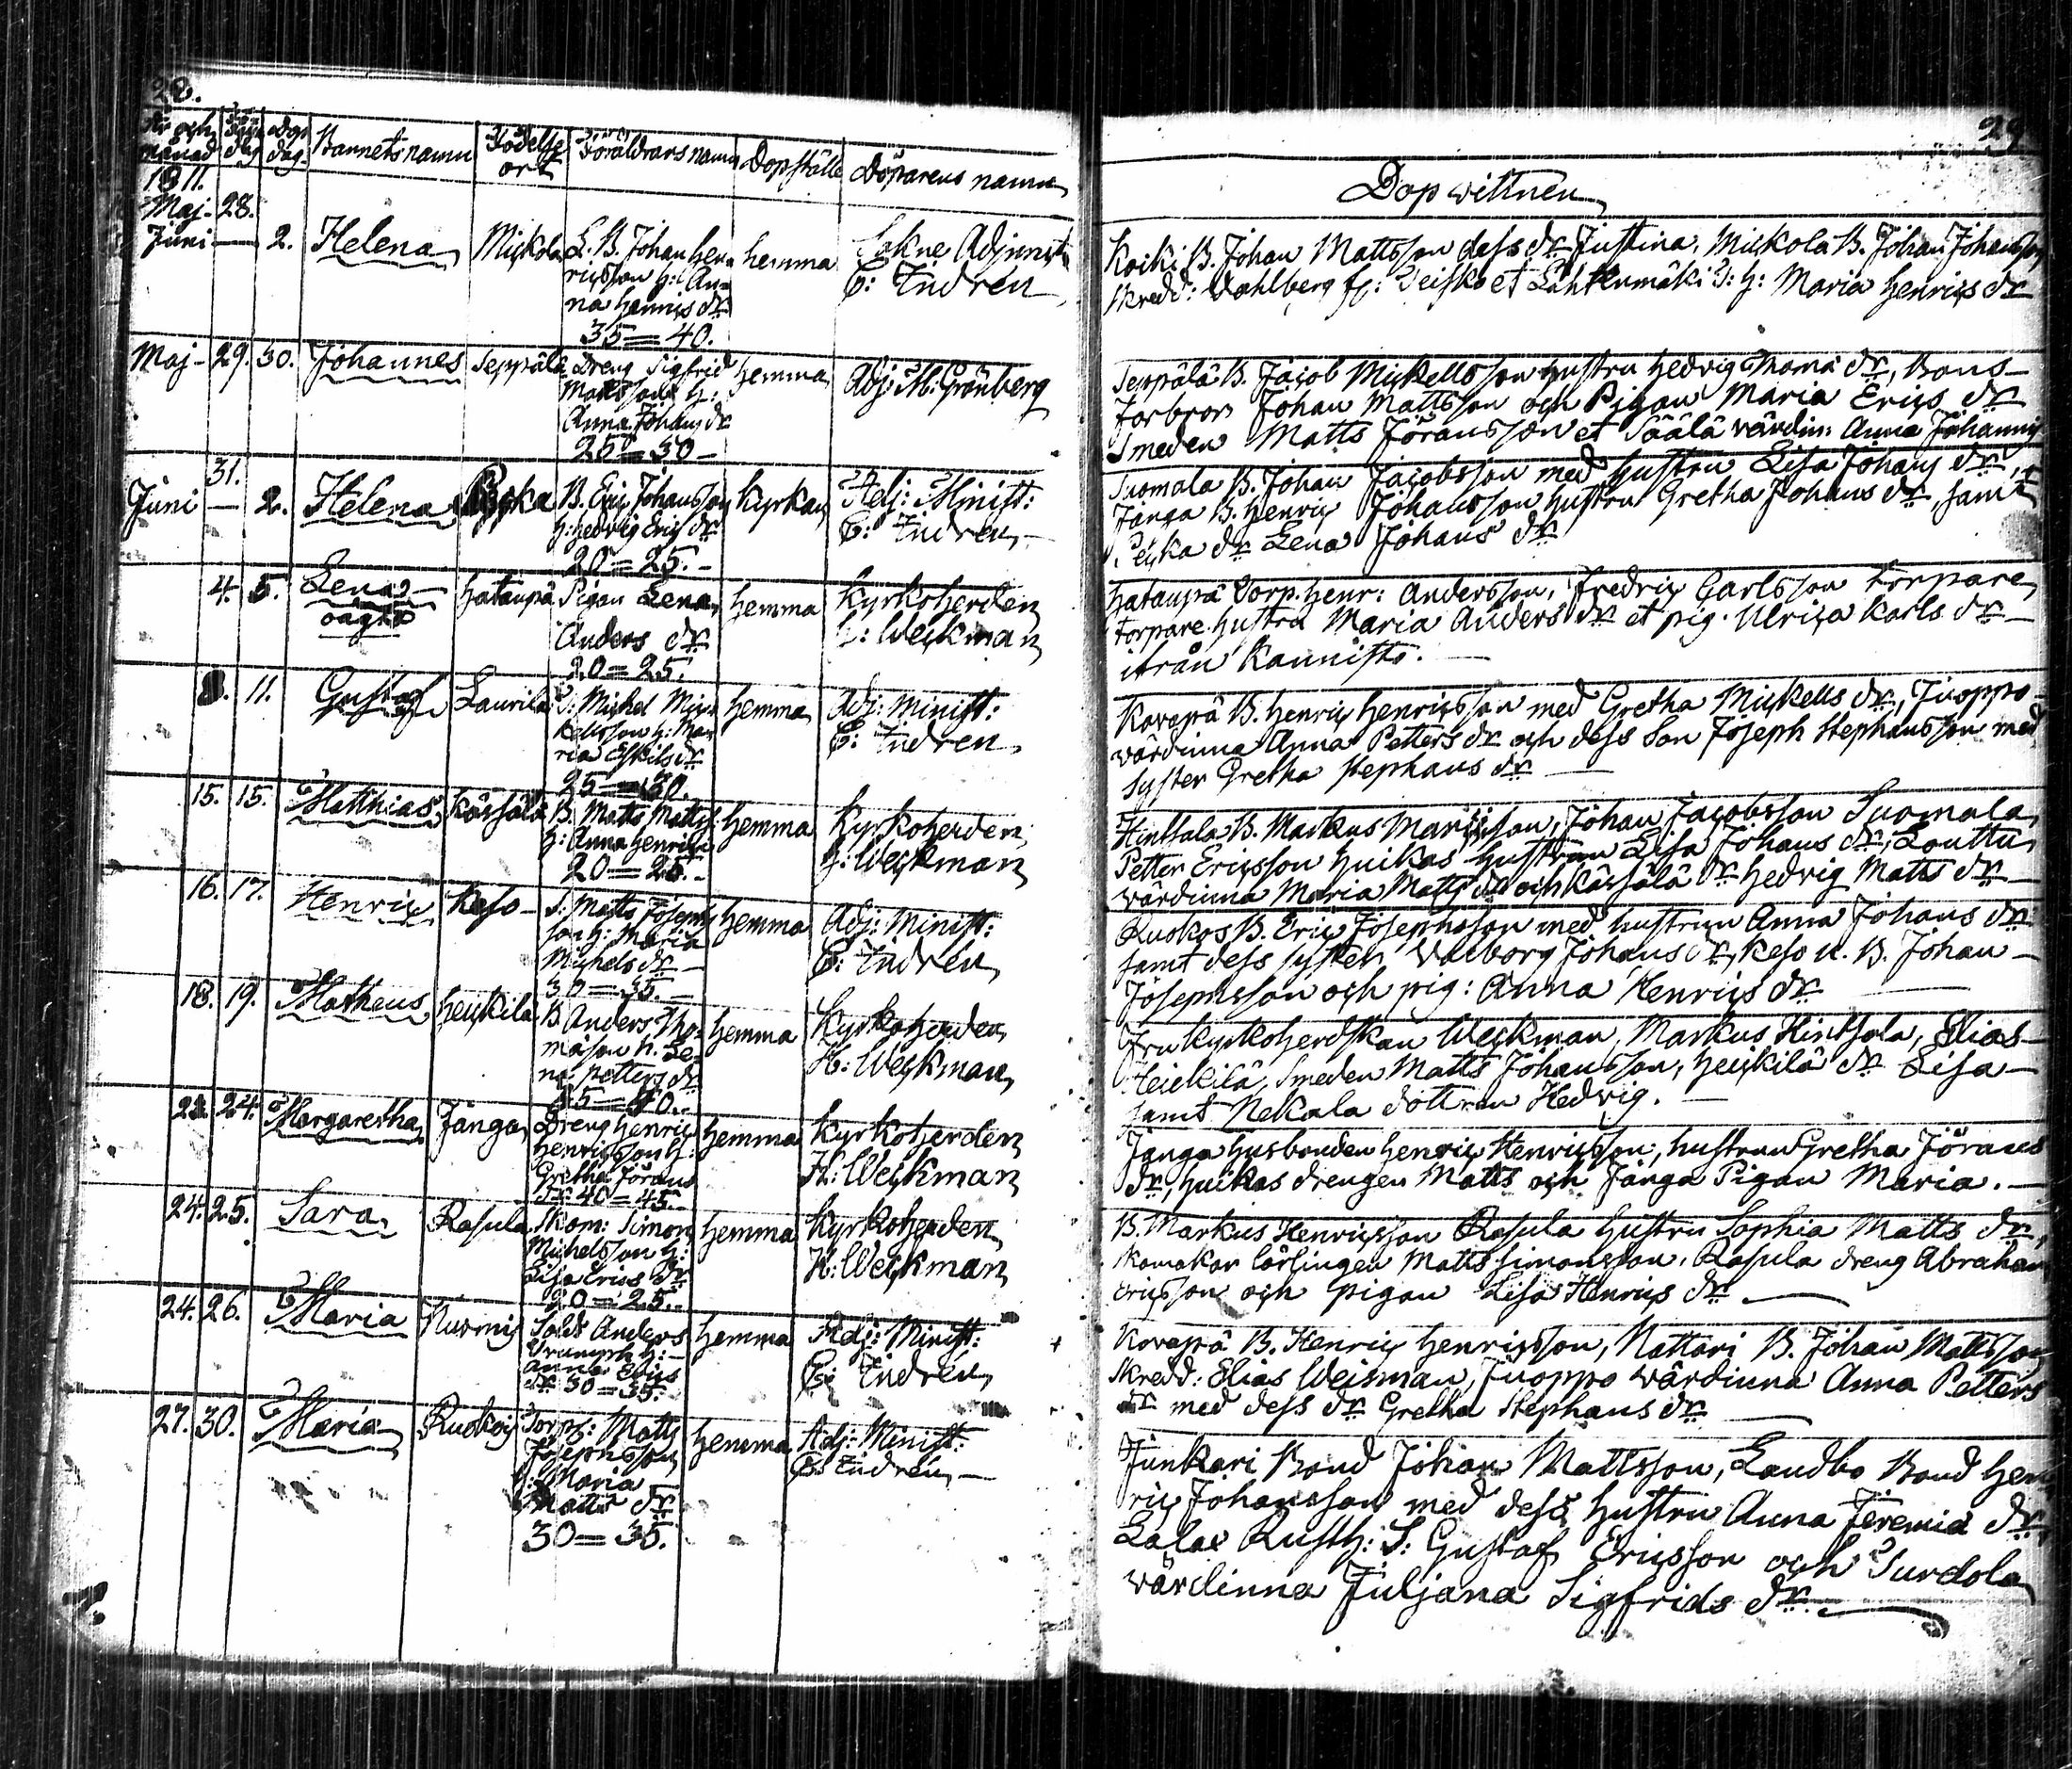 28.
År och månad
dag
dag
Barnets namn
Födelse ort
Föräldrars namn
Dopställe
Döparens namn
1811.
Maj - 28.
Juni — 2. Helena
Mickola
L. B. Johan Hen-
ricsson h: An-
na Henrics dr
35=40.
hemma
Sokne Adjuncten
C: Indrén
Maj - 29. 30. Johannes
Seppälä
Dreng Sigfrid
Matsson h:
Anna Johans dr
25=30 -
hemma
Adj: M: Grönberg
31.
Juni — 2. Helena
B. Eric Johansson
h: Hedvig Erics dr
20=25. -
kyrkan
Adj: Minist:
C: Indren. -
4. 5. Lena -
oägta
Hatanpä
Pigan Lena
Anders dr
20=25.
hemma
Kyrkoherden
H: Weckman
8. 11. Gustaf
Laurila
I: Michel Mic-
kelsson h: Ma-
ria Eskils dr
25=30.
hemma
Adj: Minist:
C: Indren.
15. 15. Matthias
Kärsälä
B. Matts Matts:
h: Anna Henrics
20=25. -
hemma
Kyrkoherden
H: Weckman
16. 17. Henric
Keso -
I: Matts Joseph
son h: Maria
Michels dr -
30=35. -
hemma
Adj: Minist:
C: Indrén
18. 19. Matheus
Heickilä
B Anders Tho-
masson h. Le-
na Petters dr
35=40..
hemma
Kyrkoherden
H: Weckman
24. Margaretha
Jánga
Dreng Henric
Henricsson h:
Gretha Jörans
dr 40=45.
hemma
Kyrkoherden
H: Weckman
24. 25. Sara
Rasula
Skom: Simon
Michelsson h:
Lisa Erics dr
20=25..
hemma
Kyrkoherden
H: Weckman
24. 26. Maria
Kurmis
Sold: Anders
Trumph h: -
Anna Erics
dr 30=35.
hemma
Adj: Minist:
C: Indrén
27. 30. Maria
Ruokois
Torp: Matts
Josephsson
h: Maria
Matts dr
30=35.
hemma
Adj: Minist:
C: Indrén, -
29
Dopwittnen
Koiki B. Johan Mattsson dess dr Justina, Mickola B. Johan Johansson
skredd: Dahlberg fr: Seisko et Lähtenmäki I: h: Maria Henrics dr
Seppälä B. Jacob Mickellsson hustru Hedvig Thoma dr, Bons-
forbror Johan Mattsson och Pigan Maria Erics dr
Smeden Matts Jöransson et Säälä värdin: Anna Johannis
Suomala B. Johan Jacobsson med hustru Lisa Johans dr
Jánga B. Henric Johansson hustru Gretha Johans dr, samt
dr Lena Johans dr
Hatanpä Torp. Henr: Andersson, Fredric Carlsson Torpare
torpare hustru Maria Anders dr et pig. Ulrica Karls dr -
ifrån Kannisto. —
Kovapä B. Henric Henricsson med Gretha Mickells dr, Juoppo-
värdinna Anna Petters dr och dess Son Joseph Stephansson med
syster Gretha Stephans dr —
Hintsala B. Markus Maricsson, Johan Jacobsson Suomala,
Petter Ericsson Huikas hustrun Lisa Johans dr, Louttu
värdinna Maria Matts dr och Kärsälä dr Hedvig Matts dr -
Ruokos B. Eric Josephsson med hustrun Anna Johans dr
samt dess syster Walborg Johans dr, Keso u. B. Johan -
Josephsson och pig: Anna Henrics dr —
Fru Kyrkoherdskan Weckman, Markus Hintsala, Elias -
Heickilä, Smeden Matts Johansson, Heickilä dr Lisa -
samt Nekala dottren Hedvig. —
Jánga husbonden Henric Henricsson, hustrun Gretha Jörans
dr, Huikas drengen Matts och Jánga Pigan Maria. —
B. Markus Henricsson Rasula hustru Sophia Matts dr,
skomakar lärlingen Matts Simonsson, Rasula dreng Abraham
Ericsson och pigan Lisa Henrics dr —
Kovapä B. Henric Henricsson, Nattari B. Johan Mattsson
Skredd: Elias Weisman, Juoppo värdinna Anna Petters
dr med dess dr Gretha Stephans dr —
Junkari Bond Johan Mattsson, Landbo Bond Hen-
ric Johansson med dess hustru Anna Jeremia dr,
Lalax Rusth: S: Gustaf Ericsson och Surdola
värdinna Juljana Sigfrids dr —